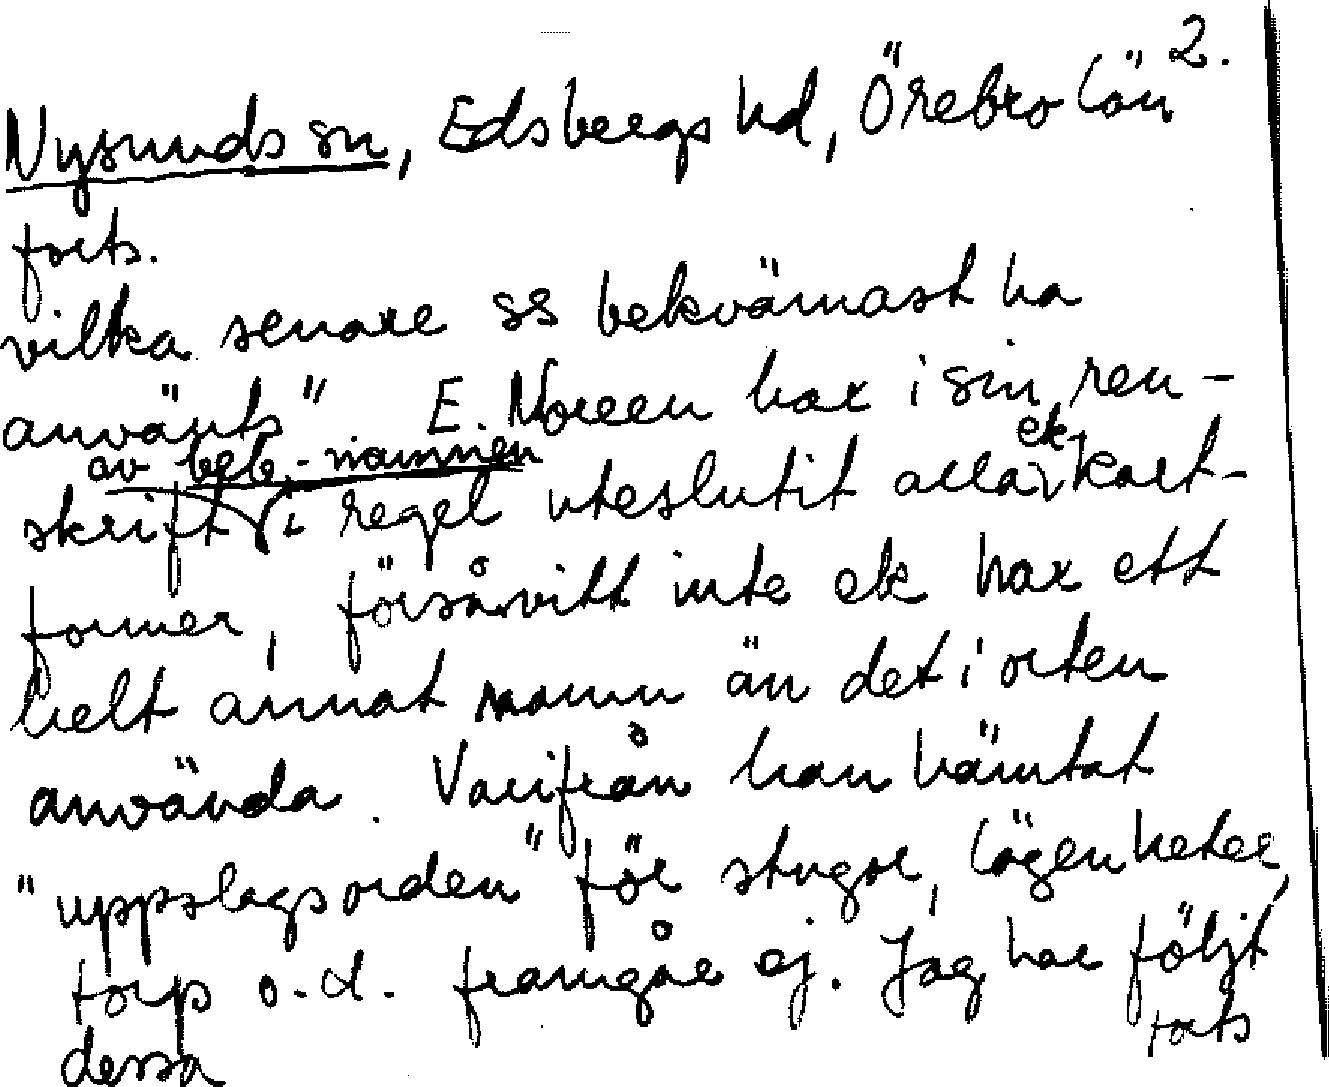 2.
Nysunds sn, Edsbergs hd, Örebro län
forts.
vilka senare ss bekvämast ha
använts" E. Noreen har i sin ren-
av beb.-namnen ek
skrift i regel uteslutit alla kort-
former, försåvitt inte ek har ett
helt annat namn än det i orten
använda. Varifrån han hämtat
"uppslagsorden" för stugor, lägenheter,
torp o.d. framgår ej. Jag har följt
dessa forts